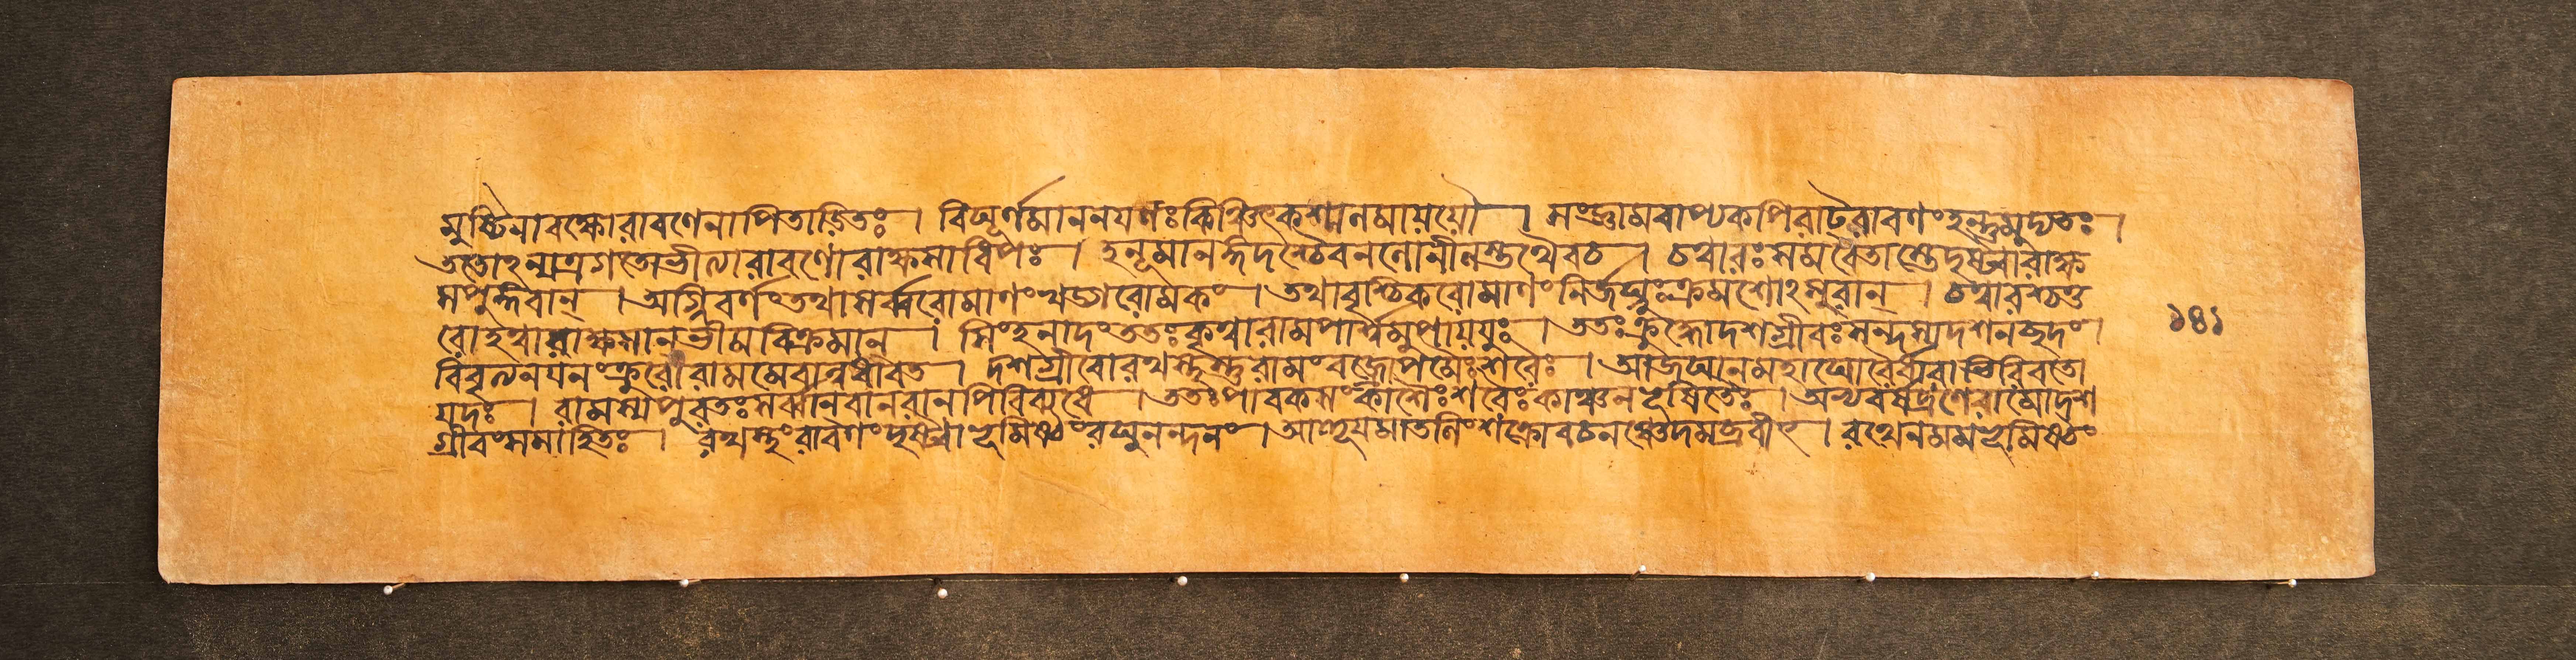 মুষ্টিনাবক্ষোরাবণেনাপিতাড়িতঃ। বিঘূর্ণমাননয়নঃকিঞ্চিৎকশ্মলমায়যৌ। সংজ্ঞামবাপ্যকপিরাট্রাবণংহন্তুমুদ্যতঃ।
ততোঽন্যত্রগতোভীত্যারাবণোরাক্ষসাধিপঃ। হনূমানঙ্গদশ্চৈবনলোনীলস্তথৈবচ। চত্বারঃসমবেতাস্তেদৃষ্ট্বারাক্ষ
সপুঙ্গবান্। অগ্নিবর্ণংতথাসর্পরোমাণংখড়্গরোমকং। তথাবৃশ্চিকরোমাণংনির্জঘ্নুঃক্রমশোঽসুরান্। চত্বারশ্চতু ১৪১
রোহত্বারাক্ষসান্ভীমবিক্রমান্। সিংহনাদংততঃকৃত্বারামপার্শ্বমুপায়যুঃ। ততঃক্রুদ্ধোদশগ্রীবঃসন্দশ্যদশনচ্ছদং।
বিবৃত্যনয়নংক্রূরোরামমেবান্বধাবত। দশগ্রীবোরথস্থস্তুরামংবজ্রোপমৈঃশরৈঃ। আজঘানমহাঘোরৈর্ধারাভিরিবতো
যদঃ। রামস্যপুরতঃসর্ব্বান্বানরানপিবিব্যধে। ততঃপাবকসংকাশৈঃশরৈঃকাঞ্চনভূষিতৈঃ। অভ্যবর্ষদ্রণেরামোদশ
গ্রীবংসমাহিতঃ। রথস্থংরাবণংদৃষ্ট্বাভূমিষ্ঠংরঘুনন্দনং। আহূয়মাতলিংশক্রোবচনঞ্চেদমব্রবীৎ। রথেনমমভূমিষ্ঠং